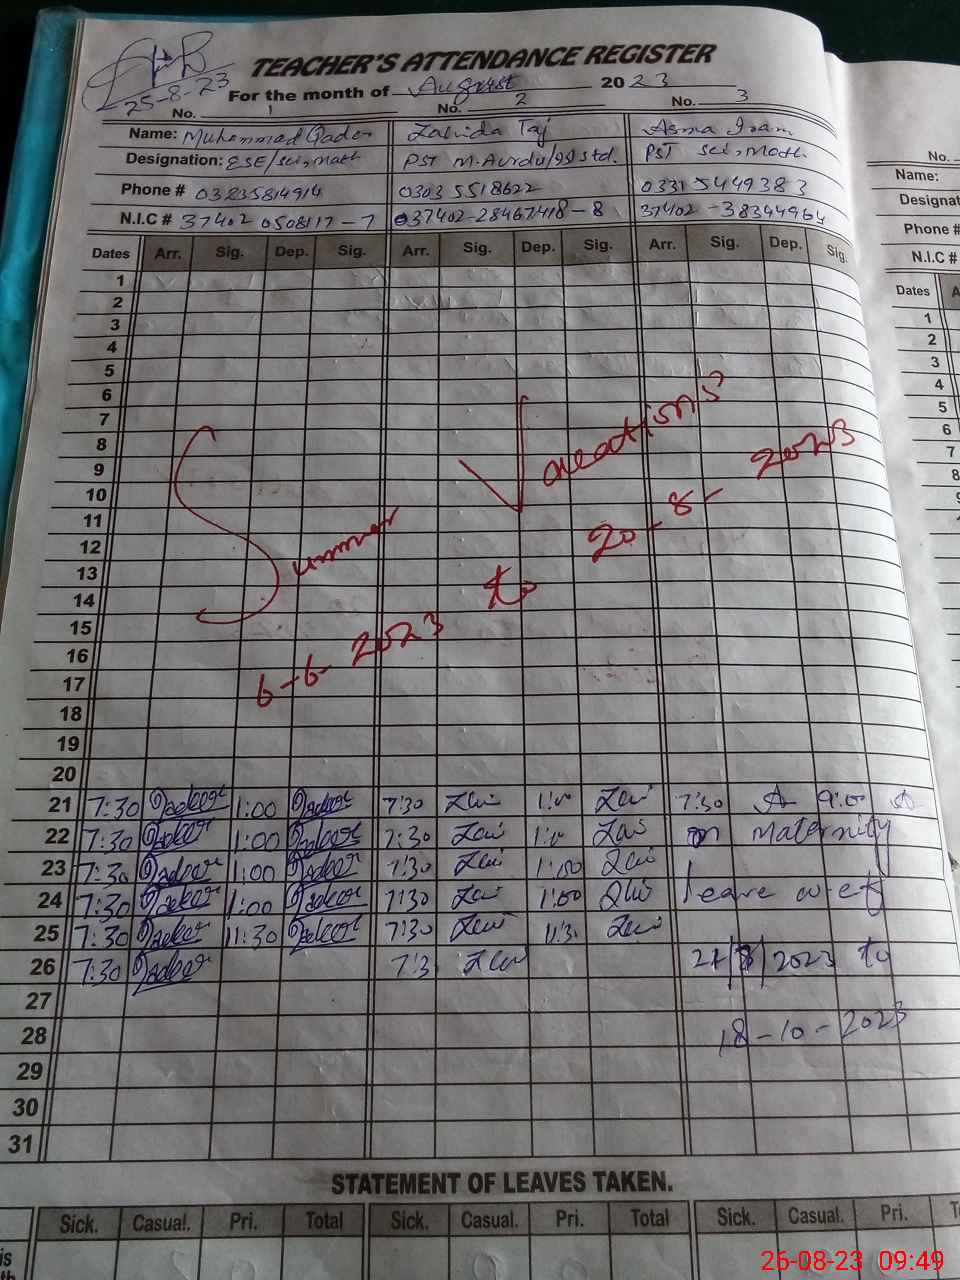 25-8-23
TEACHER'S ATTENDANCE REGISTER
For the month of August 2023
No. 1 No. 2 No. 3
Name: Muhammad Qadeer Zahida Taj Asma Iram
Designation: ESE/sci, math PST PST Sci, Math
Phone # 03235814914 0303 5518622 0331 5449383
N.I.C # 37402 0508117-7 37402-28467418-8 37402-38344964
Dates Arr. Sig. Dep. Sig. Arr. Sig. Dep. Sig. Arr. Sig. Dep. Sig.
1
2
3
4
5
6
7
8
9
10
11
12
13
14
15
16
17
18
19
20
Summer Vacations
6-6-2023 to 20-8-2023
21 7:30 Qadeer 1:00 Qadeer 7:30 Zai 1:00 Zai 7:30 9:00
22 7:30 Qadeer 1:00 Qadeer 7:30 Zai 1:00 Zai on maternity
23 7:30 Qadeer 1:00 Qadeer 7:30 Zai 1:00 Zai
24 7:30 Qadeer 1:00 Qadeer 7:30 Zai 1:00 Zai leave w.e.f
25 7:30 Qadeer 11:30 Qadeer 7:30 Zai 11:3 Zai
26 7:30 Qadeer 7:3 Zai 21/8/2023 to
27
28 18-10-2023
29
30
31
STATEMENT OF LEAVES TAKEN.
Sick. Casual. Pri. Total Sick. Casual. Pri. Total Sick. Casual. Pri.
No.
Name:
Phone #
N.I.C #
Dates
1
2
3
4
5
6
7
8
26-08-23 09:49